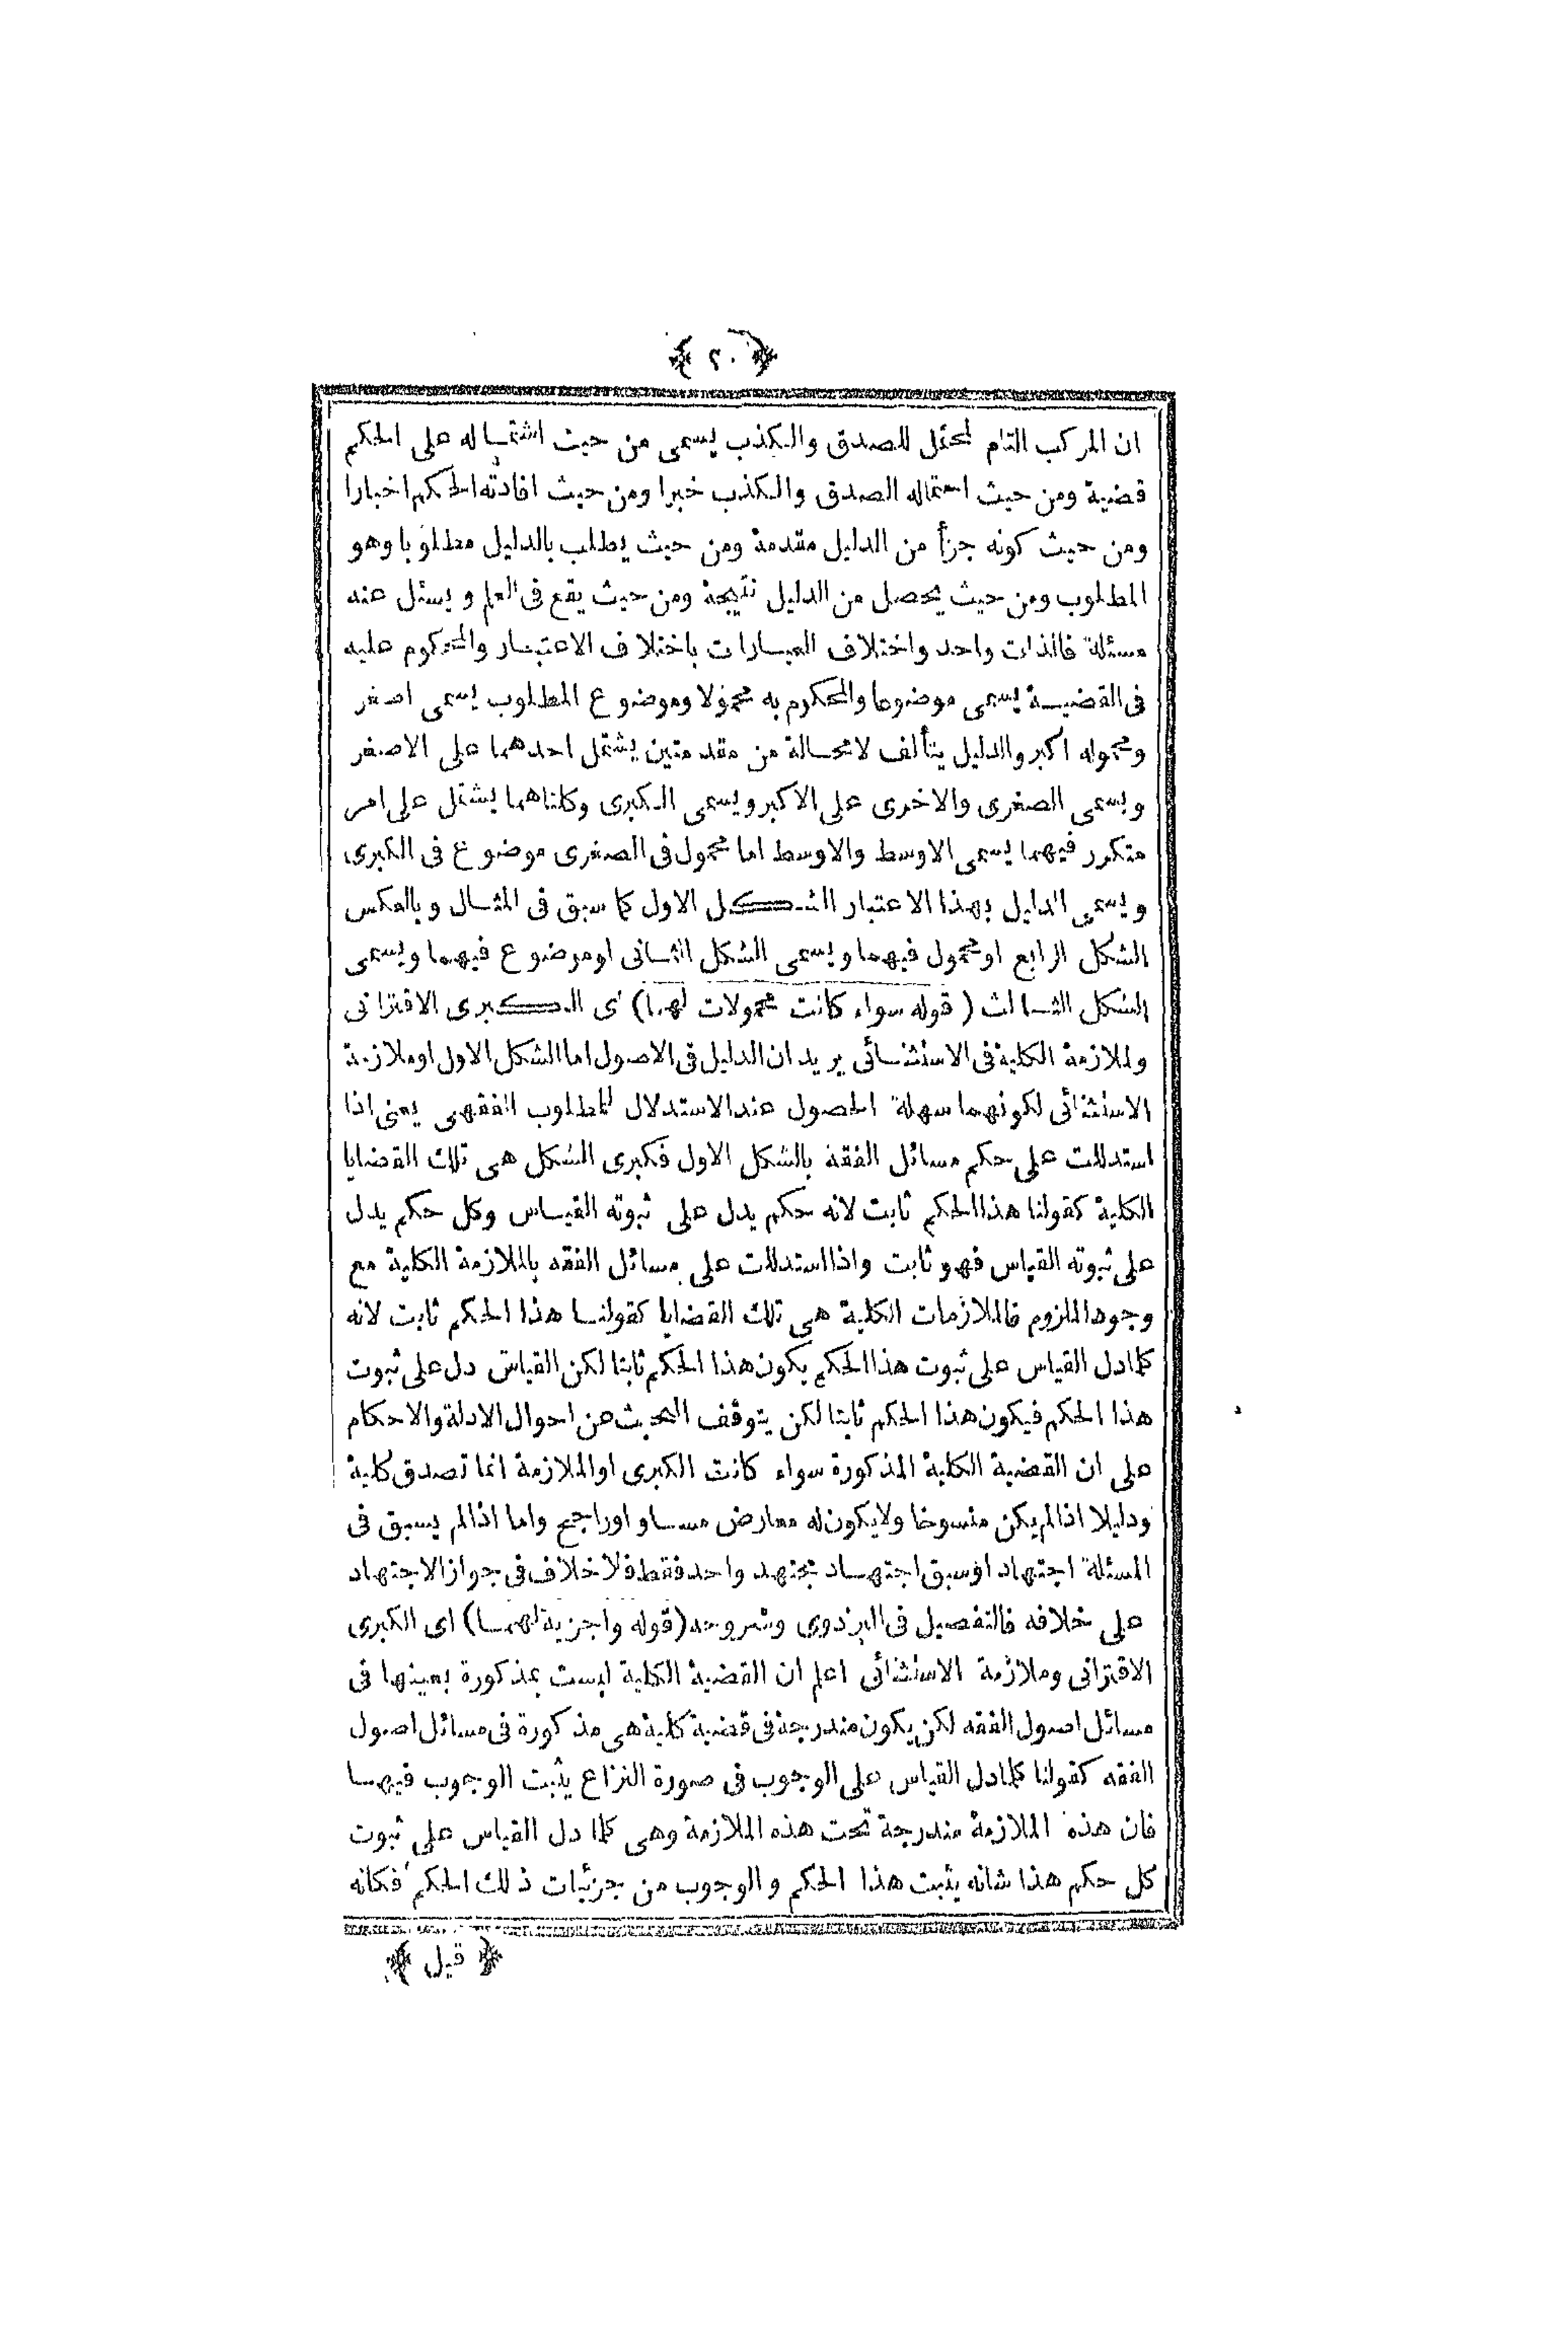 ﴿ ٢٠ ﴾
ان المركب التام المحتمل للصدق والكذب يسمى من حيث اشتماله على الحكم
قضية ومن حيث احتماله الصدق والكذب خبرا ومن حيث افادته الحكم اخبارا
ومن حيث كونه جزأ من الدليل مقدمة ومن حيث يطلب بالدليل مطلوبا وهو
المطلوب ومن حيث يحصل من الدليل نتيجة ومن حيث يقع فى العلم و يسئل عنه
مسئلة فالذات واحد واختلاف العبارات باختلاف الاعتبار والمحكوم عليه
فى القضية يسمى موضوعا والمحكوم به محمولا وموضوع المطلوب يسمى اصغر
ومحموله اكبر والدليل يتألف لامحالة من مقدمتين يشتمل احدهما على الاصغر
ويسمى الصغرى والاخرى على الاكبر ويسمى الكبرى وكلتاهما يشتمل على امر
متكرر فيهما يسمى الاوسط والاوسط اما محمول فى الصغرى موضوع فى الكبرى
ويسمى الدليل بهذا الاعتبار الشكل الاول كما سبق فى المثال وبالعكس
الشكل الرابع او محمول فيهما ويسمى الشكل الثانى او موضوع فيهما ويسمى
الشكل الثالث ( قوله سواء كانت محمولات لهما) اى الكبرى الاقترانى
ولملازمة الكلية فى الاستثنائى يريد ان الدليل فى الاصول اما الشكل الاول او ملازمة
الاستثنائى لكونهما سهلة الحصول عند الاستدلال للمطلوب الفقهى يعنى اذا
استدللت على حكم مسائل الفقه بالشكل الاول فكبرى الشكل هى تلك القضايا
الكلية كقولنا هذا الحكم ثابت لانه حكم يدل على ثبوته القياس وكل حكم يدل
على ثبوته القياس فهو ثابت واذا استدللت على مسائل الفقه بالملازمة الكلية مع
وجود الملزوم فالملازمات الكلية هى تلك القضايا كقولنا هذا الحكم ثابت لانه
كلما دل القياس على ثبوت هذا الحكم يكون هذا الحكم ثابتا لكن القياس دل على ثبوت
هذا الحكم فيكون هذا الحكم ثابتا لكن يتوقف البحث عن احوال الادلة والاحكام
على ان القضية الكلية المذكورة سواء كانت الكبرى او الملازمة انما تصدق كلية
ودليلا اذا لم يكن منسوخا ولا يكون له معارض مساو او راجح واما اذا لم يسبق فى
المسئلة اجتهاد او سبق اجتهاد مجتهد واحد فقط فلا خلاف فى جواز الاجتهاد
على خلافه فالتفصيل فى البزدوى وشروحه (قوله واجزية لهما) اى الكبرى
الاقترانى وملازمة الاستثنائى اعلم ان القضية الكلية ليست بمذكورة بعينها فى
مسائل اصول الفقه لكن يكون مندرجة فى قضية كلية هى مذكورة فى مسائل اصول
الفقه كقولنا كلما دل القياس على الوجوب فى صورة النزاع يثبت الوجوب فيها
فان هذه الملازمة مندرجة تحت هذه الملازمة وهى كلما دل القياس على ثبوت
كل حكم هذا شانه يثبت هذا الحكم والوجوب من جزئيات ذلك الحكم فكانه
﴿ قيل ﴾